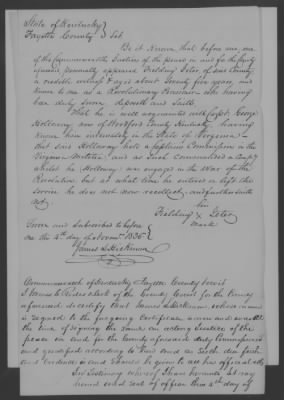 State of Kentucky
Fayette County Sct
Be it Known, that before me, one
of the Commonwealths Justices of the peace in and for the County
aforesaid personally appeared Fielding Jeter of said County
a credible witness & aged about Seventy five years, and
Known to me as a Revolutionary Pensioner who having
been duly Sworn deposeth and Saith
That he is well acquainted with Capt. George
Holloway now of Woodford County Kentucky having
Known him intimately in the State of Virginia
that said Holloway held a Captains Commission in the
Virginia Militia, and as such commanded a Compy
whilst he Holloway was engaged in the War of the
Revolution but at what time he entered or left the
Service he does not now recollect, and further saith
not.
his
Fielding X Jeter
mark
Sworn and Subscribed to before
me the 4th day of Novemr. 1836
James L Hickman
Commonwealth of Kentucky Fayette County to wit
I James C Rodes clerk of the County Court for the County
aforesaid do certify that James L Hickman whose name
is signed to the foregoing certificate was
the time of signing the same an acting Justice of the
peace in and for the County aforesaid duly Commissioned
and qualified according to law and as such due faith
and credence is and should be given to all his official acts
In Testimony whereof I have hereunto set my
hand and seal of office this 4th day of